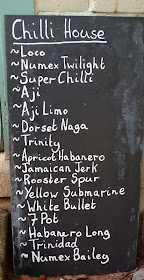 Chilli House
~Loco
~Numex Twilight
~Super Chilli
~Aji
~Aji Limo
~Dorset Naga
~Trinity
~Apricot Habanero
~Jamaican Jerk
~Rooster Spur
~Yellow Submarine
~White Bullet
~7 Pot
~Habanero Long
~Trinidad
~Numex Bailey